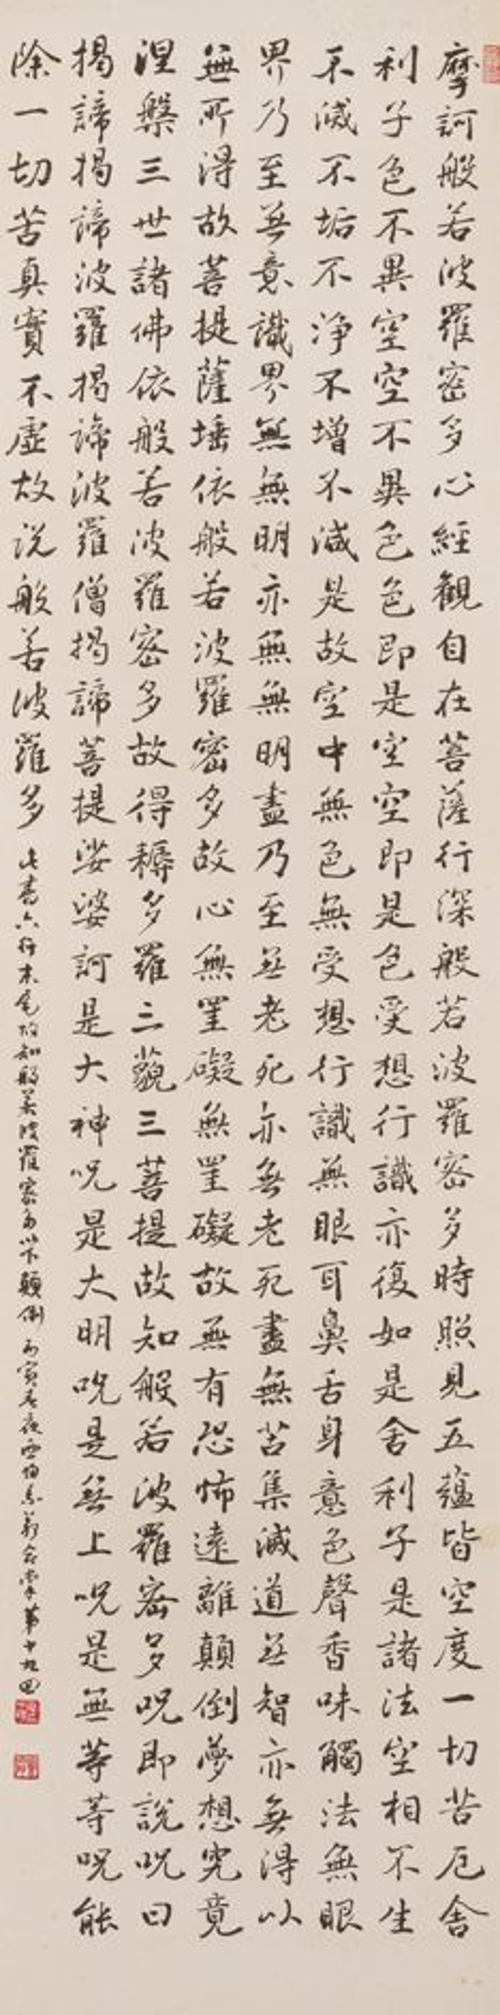 摩訶般若波羅密多心經觀自在菩薩行深般若波羅密多時照見五蘊皆空度一切苦厄舍
利子色不異空空不異色色即是空空即是色受想行識亦復如是舍利子是諸法空相不生
不滅不垢不淨不增不減是故空中無色無受想行識無眼耳鼻舌身意色聲香味觸法無眼
界乃至無意識界無無明亦無無明盡乃至無老死亦無老死盡無苦集滅道無智亦無得以
無所得故菩提薩埵依般若波羅密多故心無罣礙無罣礙故無有恐怖遠離顛倒夢想究竟
涅槃三世諸佛依般若波羅密多故得耨多羅三藐三菩提故知般若波羅密多呪即說呪曰
揭諦揭諦波羅揭諦波羅僧揭諦菩提娑婆訶是大神呪是大明呪是無上呪是無等等呪能
除一切苦真實不虛故說般若波羅多
此書六行末尾故知般若波羅密多以下顛倒 丙寅